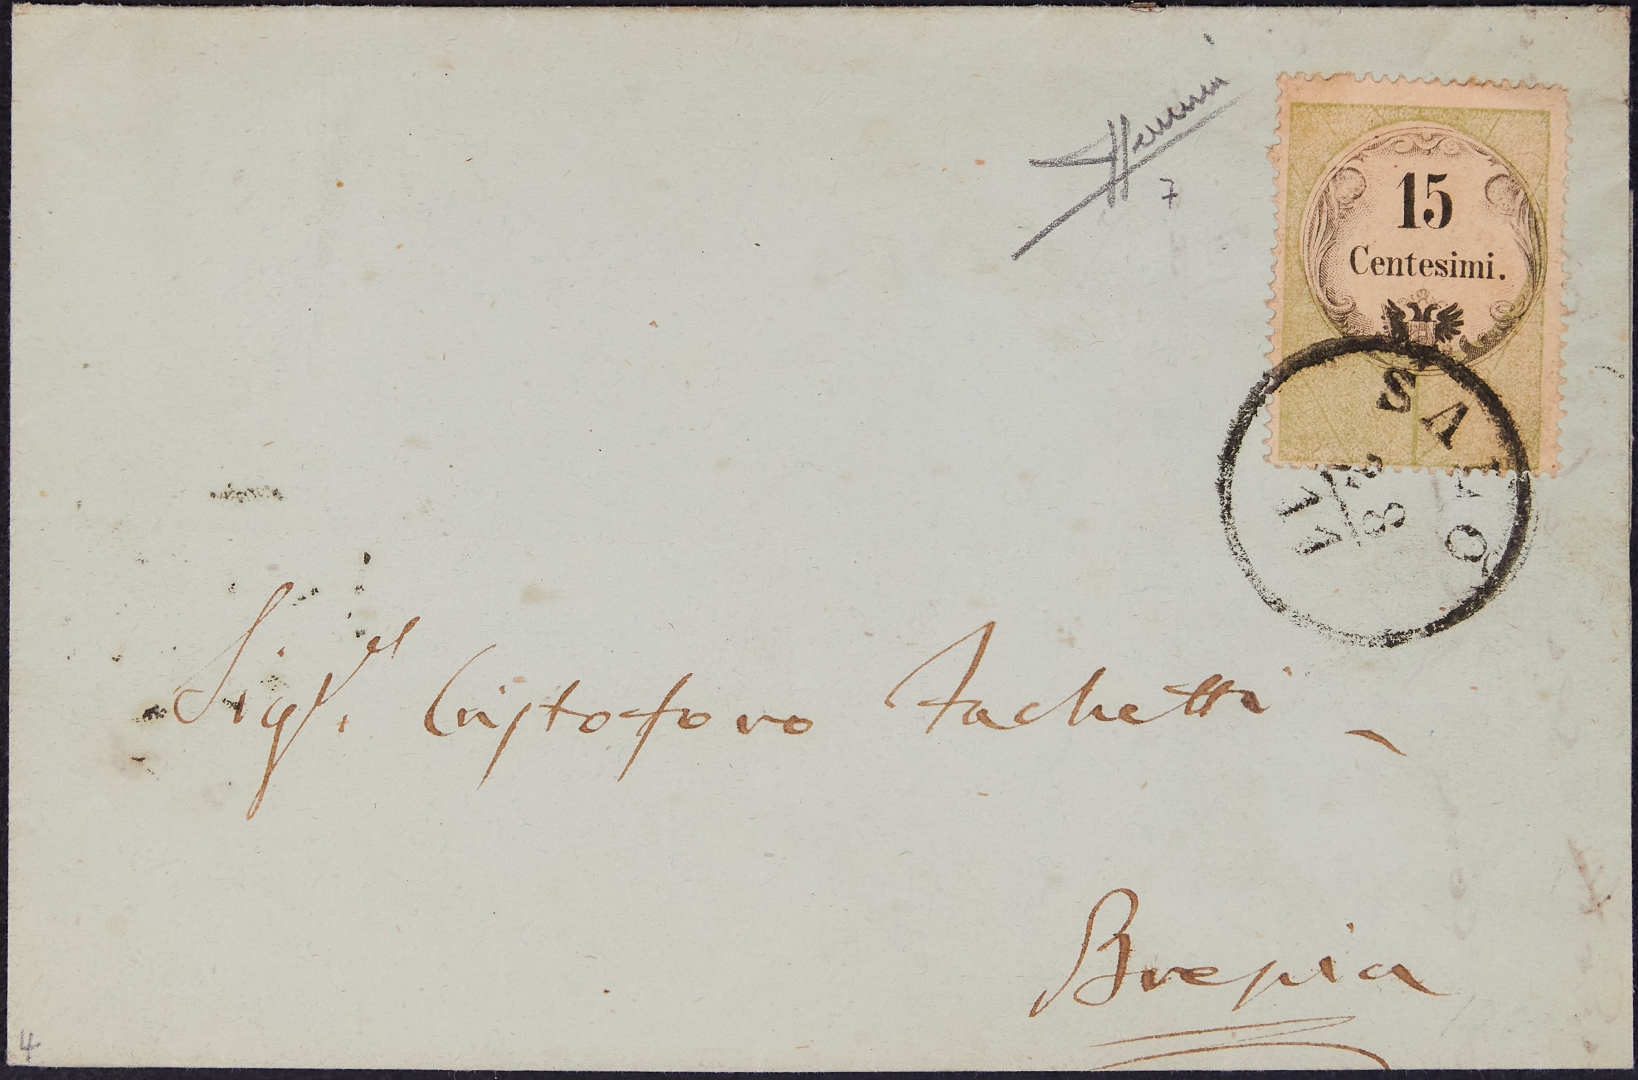 7
15
Centesimi.
SALÒ
8
Sigr. Cristoforo Fachetti
Brescia
4